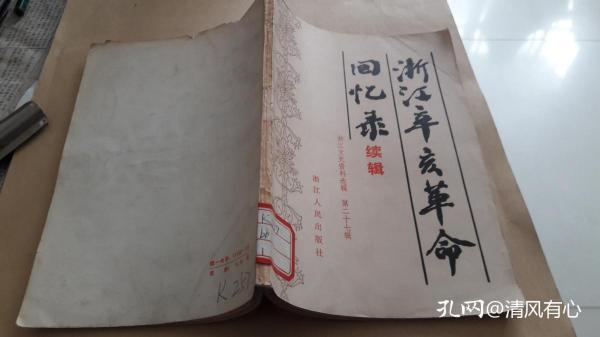 浙江辛亥革命
回忆录
续辑
浙江文史资料选辑 第二十七辑
浙江人民出版社
K257
孔网@清风有心